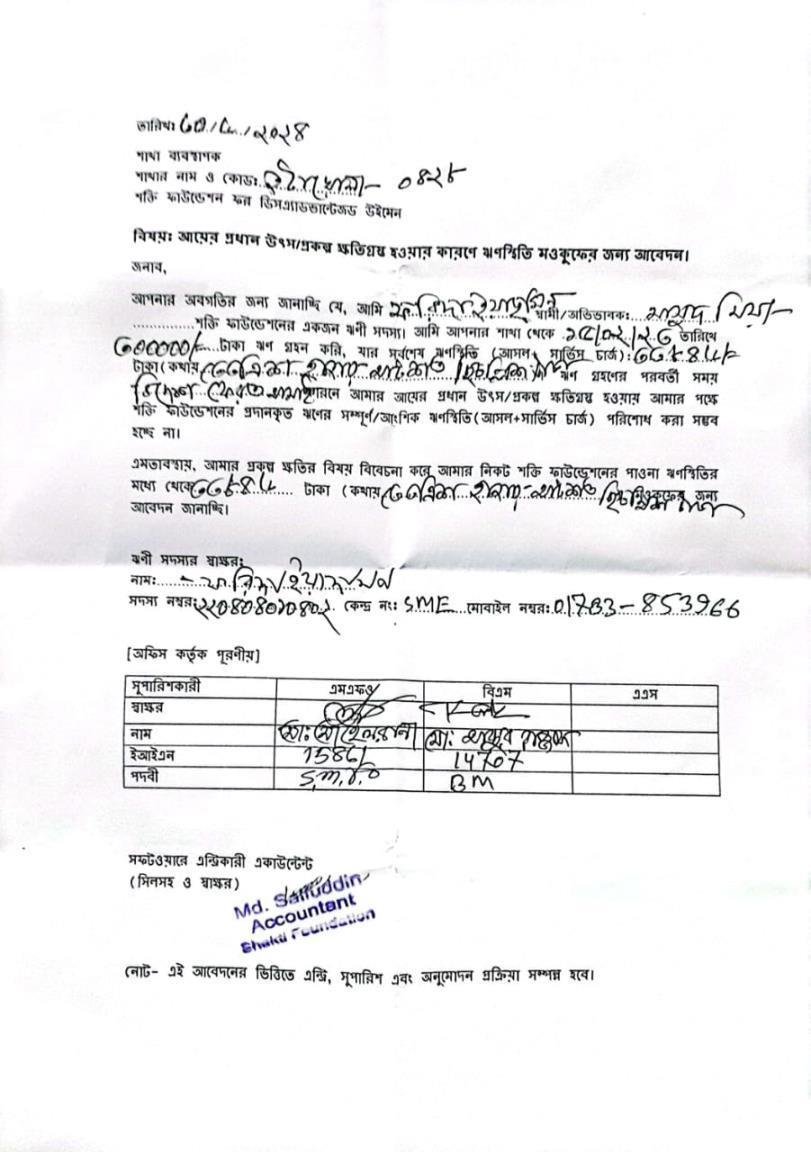 তারিখঃ ৩০/৬/২০২৪
শাখা ব্যবস্থাপক
শাখার নাম ও কোডঃ ০৪২৮
শক্তি ফাউন্ডেশন ফর ডিসএ্যাডভান্টেজড উইমেন
বিষয়ঃ আয়ের প্রধান উৎস/প্রকল্প ক্ষতিগ্রস্থ হওয়ার কারণে ঋণস্থিতি মওকুফের জন্য আবেদন।
জনাব,
আপনার অবগতির জন্য জানাচ্ছি যে, আমি ফারিদা ইয়াছমিন স্বামী/অভিভাবক: মাসুদ মিয়া
শক্তি ফাউন্ডেশনের একজন ঋনী সদস্য। আমি আপনার শাখা থেকে তারিখে
৩০০০০০/- টাকা ঋণ গ্রহন করি, যার সর্বশেষ ঋণস্থিতি (আসল+সার্ভিস চার্জ):
টাকা (কথায় ঋণ গ্রহণের পরবর্তী সময়
বিদেশ ফেরত কারনে আমার আয়ের প্রধান উৎস/প্রকল্প ক্ষতিগ্রস্থ হওয়ায় আমার পক্ষে
শক্তি ফাউন্ডেশনের প্রদানকৃত ঋণের সম্পূর্ণ/আংশিক ঋণস্থিতি(আসল+সার্ভিস চার্জ) পরিশোধ করা সম্ভব
হচ্ছে না।
এমতাবস্থায়, আমার প্রকল্প ক্ষতির বিষয় বিবেচনা করে আমার নিকট শক্তি ফাউন্ডেশনের পাওনা ঋণস্থিতির
মধ্যে থেকে টাকা (কথায় মওকুফের জন্য
আবেদন জানাচ্ছি।
ঋণী সদস্যর স্বাক্ষর:
নাম: ফারিদা ইয়াছমিন
সদস্য নম্বর: কেন্দ্র নং: SME মোবাইল নম্বর: 01783-853966
[অফিস কর্তৃক পূরণীয়]
সূপারিশকারী এমএফও বিএম এএস
স্বাক্ষর
নাম মো: মো:
ইআইএন 15861 14707
পদবী BM
সফটওয়ারে এন্ট্রিকারী একাউন্টেন্ট
(সিলসহ ও স্বাক্ষর)
Md. Saifuddin
Accountant
Shakti Foundation
নোট- এই আবেদনের ভিত্তিতে এন্ট্রি, সূপারিশ এবং অনুমোদন প্রক্রিয়া সম্পন্ন হবে।